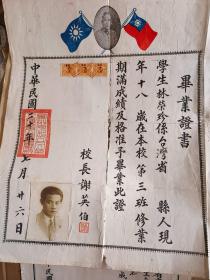 畢業證書
學生林榮珍係台灣省 縣人現
年十八歲在本校第三班修業
期滿成績及格准予畢業此證
校長謝英伯
中華民國 年七月廿六日